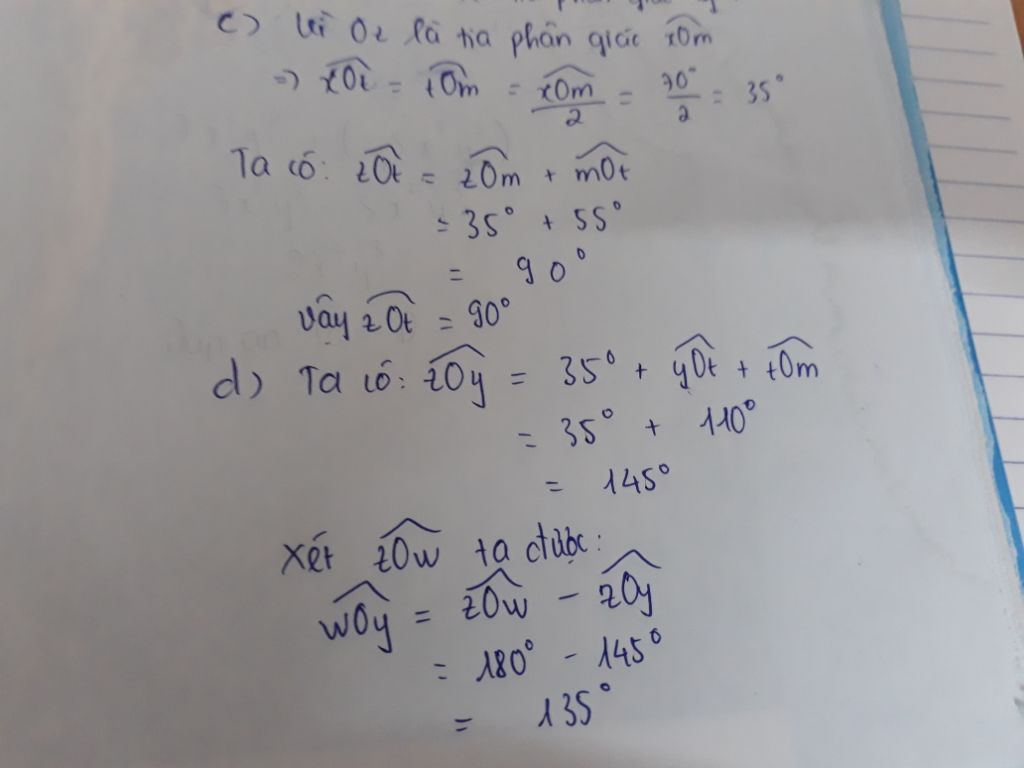 c) Vì Oz là tia phân giác xOm
=> xOz = zOm = xOm/2 = 70°/2 = 35°
Ta có: zOt = zOm + mOt
= 35° + 55°
= 90°
Vậy zOt = 90°
d) Ta có: zOy = 35° + yOt + tOm
= 35° + 110°
= 145°
Xét zOw ta được:
wOy = zOw - zOy
= 180° - 145°
= 135°